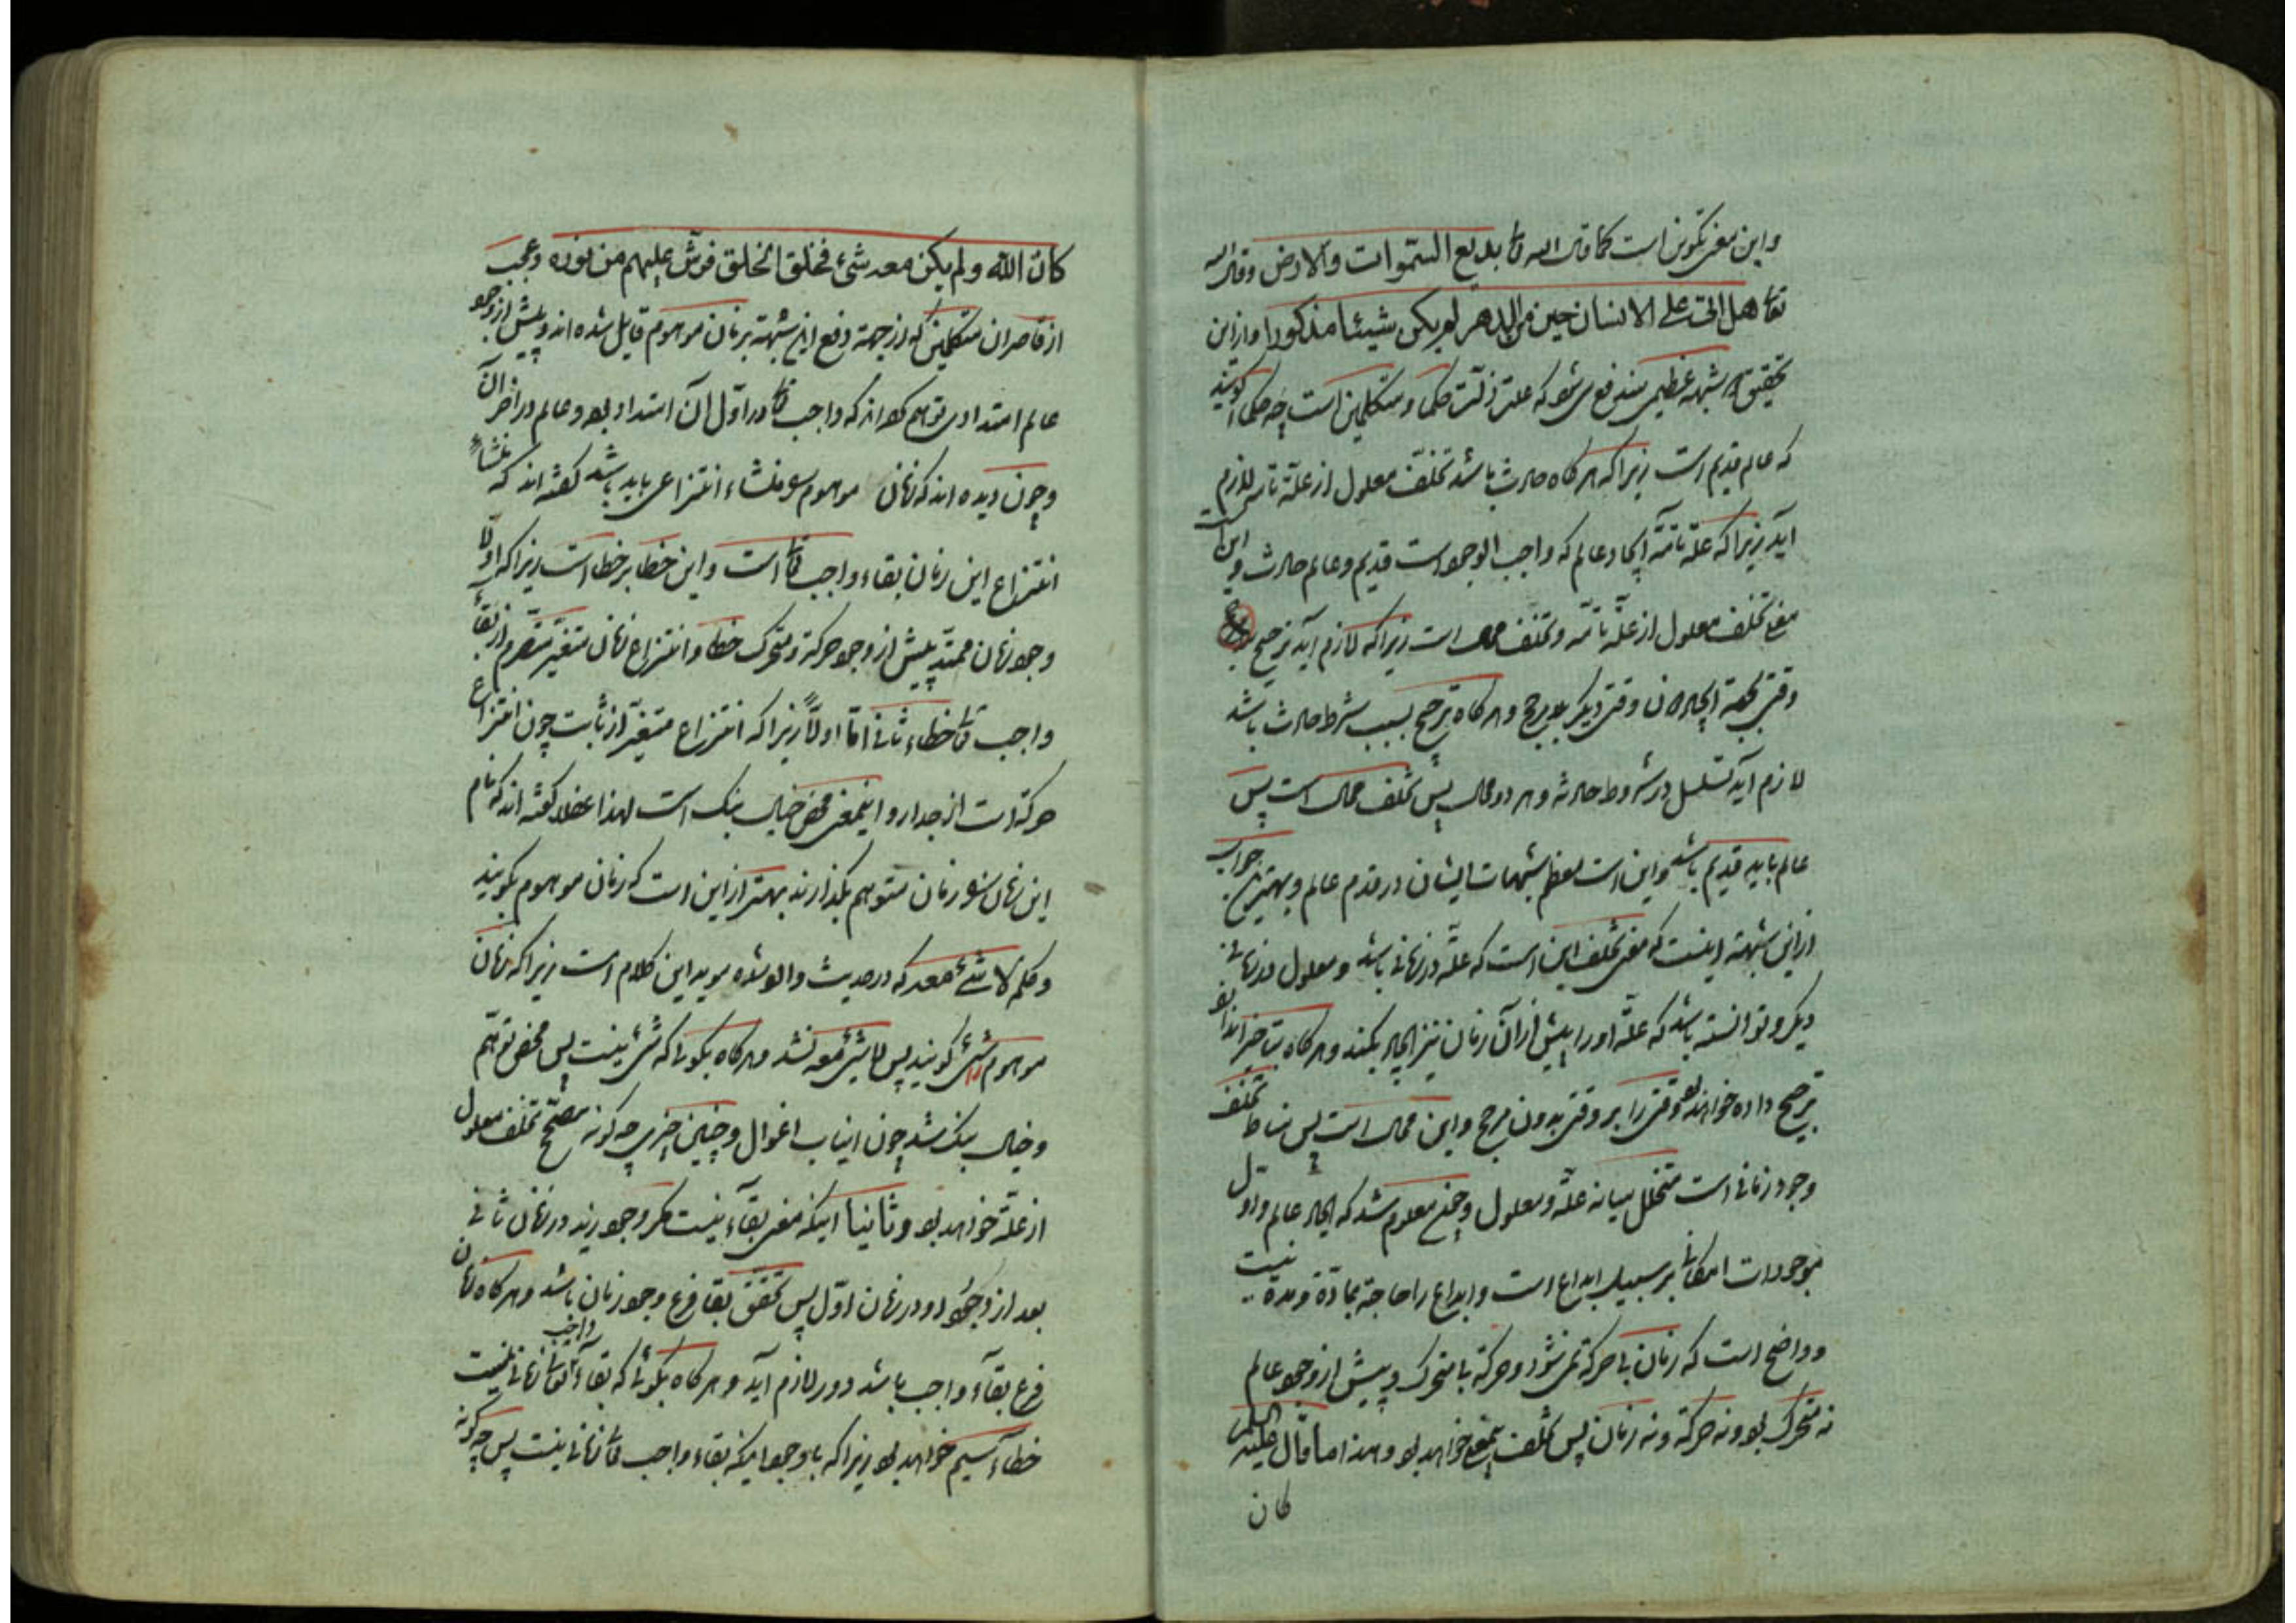 واین معنی تکوین است کما قال الله تعا بدیع السموات والارض وقال الله
تعا هل اتی علی الانسان حین من الدهر لم یکن شیئا مذکورا وازاین
تحقیق شبهه عظیمی مندفع می شود که علت زلت حکما و متکلمین است چه حکما گویند
که عالم قدیم است زیرا که هر کاه حادث باشد تخلف معلول از علة تامه لازم
آید زیرا که علة تامه ایجاد عالم که واجب الوجود است قدیم و عالم حادث و این است
معنی تخلف معلول از علة تامه و تخلف محال است زیرا که لازم آید ترجیح
وقتی بجهة ایجاد از وقتی دیکر بلا مرجح و هر کاه ترجیح بسبب شرط حادث باشد
لازم آید تسلسل در شروط حادثه و هر دو محال پس تخلف محال است پس
عالم باید قدیم باشد و این است معظم شبهات ایشان در قدم عالم و بهترین جواب
ازاین شبهة اینست که معنی تخلف این است که علة در زمانی باشد و معلول در زمانی
دیکر و توانسته باشد که علة او را پیش از آن زمان نیز ایجاد بکند و هر کاه بتاخیر اندازد
ترجیح داده خواهد بود وقتی را بر وقتی بدون مرجح و این محال است پس مناط تخلف
وجود زمانی است متخلل میانه علة و معلول و چون معلوم شد که ایجاد عالم و اول
موجودات امکانی بر سبیل ابداع است و ابداع را حاجة بمادة و مدة نیست
و واضح است که زمان با حرکة می شود و حرکة با متحرک و پیش از وجود عالم
نه متحرک بود و نه حرکة و نه زمان پس تخلف بیمعنی خواهد بود و هذا ما قال علیه السلم
کان
کان الله ولم یکن معه شیء فخلق الخلق فرش علیهم من نوره وعجب
از قاصران متکلمین که از جهة دفع این شبهة بزمان موهوم قایل شده اند و پیش از وجود
عالم امتدادی توهم کرده اند که واجب تعا در اول آن امتداد بود و عالم در آخر آن
و چون دیده اند که زمان موهوم را منشاء انتزاعی باید باشد کفته اند که منشاء
انتزاع این زمان بقاء واجب تعا است و این خطا بر خطا است زیرا که اولا
وجود زمان ممتد پیش از وجود حرکة و متحرک خطا و انتزاع زمان متغیر متصرم از بقاء
واجب تعا خطاء ثانی اما اولا زیرا که انتزاع متغیر از ثابت چون انتزاع
حرکة است از جدار و اینمعنی محض خیال بنک است لهذا عقلا کفته اند که نام
این زمان را زمان متوهم بکذارند بهتر ازاین است که زمان موهوم بکویند
و حکم لا شیء معه که در حدیث وارد شده موید این کلام است زیرا که زمان
موهوم را شیئ کویند پس لا شیئ معه نشد و هر کاه بکوئی که شیئ نیست پس محض توهم
و خیال بنک شد چون انیاب اغوال و چنین چیزی چه کونه مصحح تخلف معلول
از علة خواهد بود و ثانیا اینکه معنی بقآء نیست مکر وجود زید در زمان ثانی
بعد از وجود او در زمان اول پس تحقق بقا فرع وجود زمان باشد و هر کاه زمان
فرع بقآء واجب باشد دور لازم آید و هر کاه بکوئی که بقآء واجب تعا زمانی نیست
خطآء سیم خواهد بود زیرا که با وجود اینکه بقاء واجب تعا زمانی نیست پس چه کونه